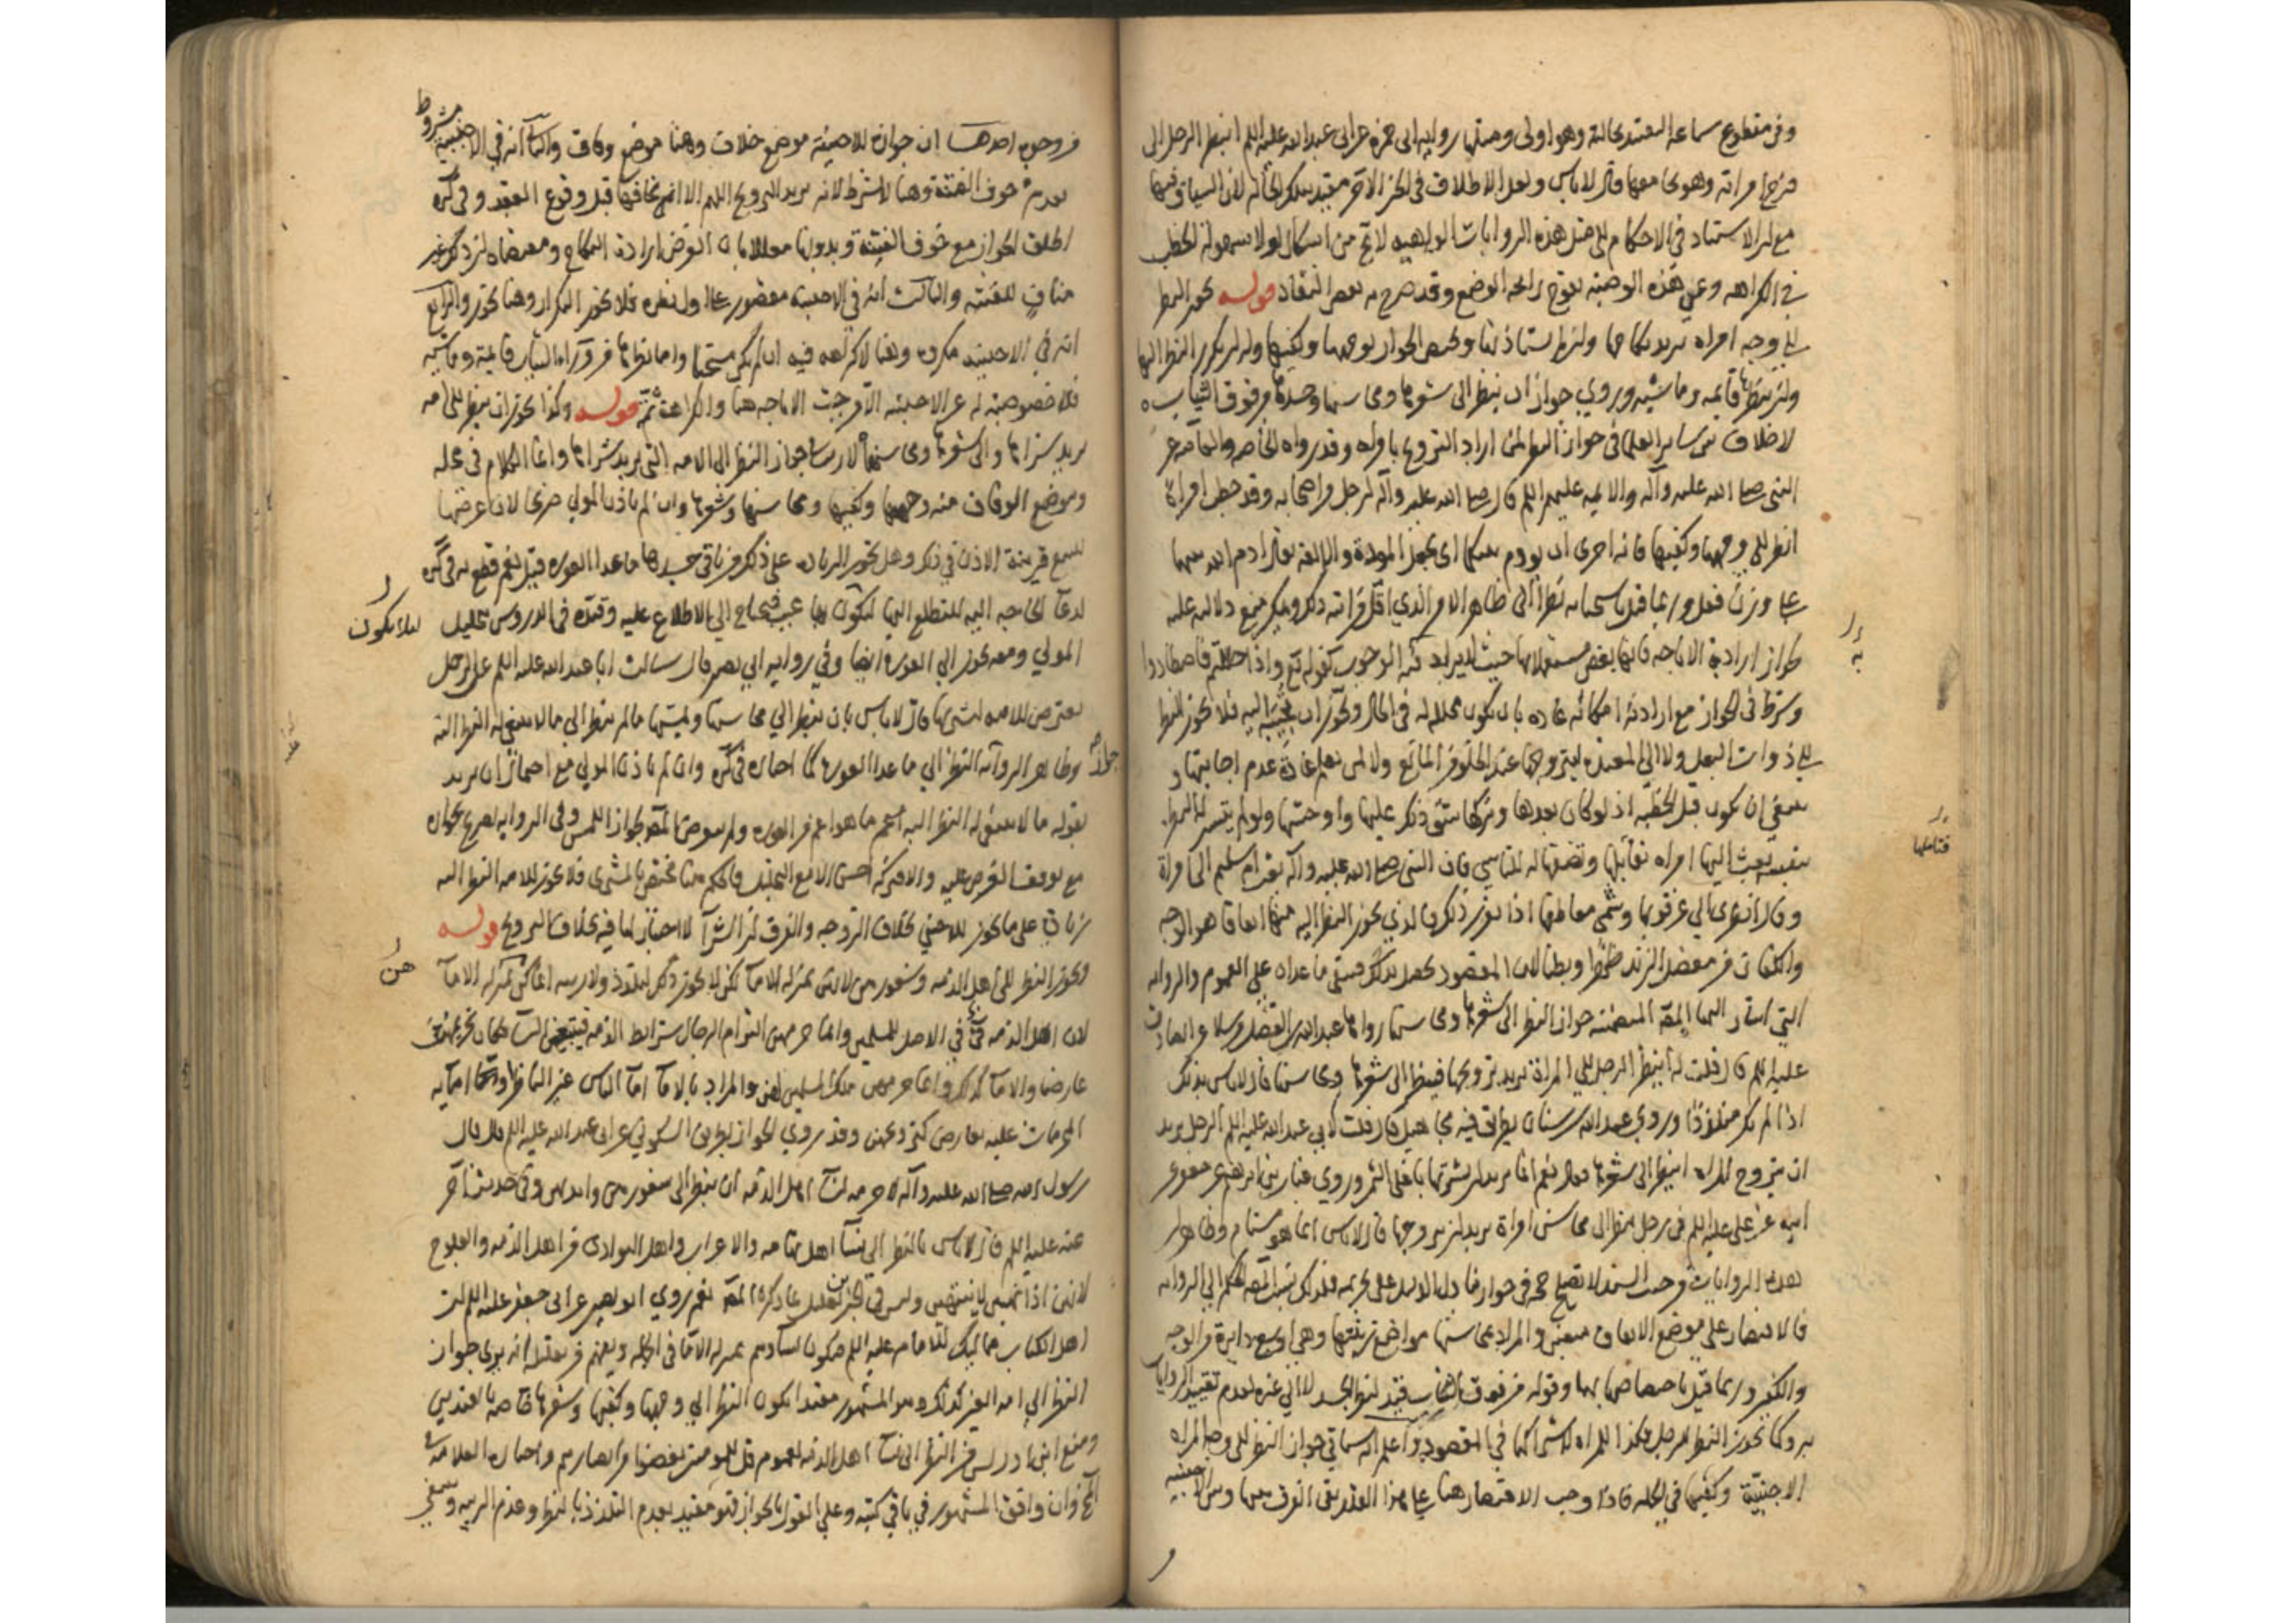 وفي مقطوع سماعة التقييد بحالته وهو اولى ومثلها رواية ابي حمزة عن ابي عبد الله عليه السلم اينظر الرجل الى
فرج امراته وهو يجامعها قال لا باس ولعل الاطلاق في الخبر الاخر مقيد بتلك الحالة لان السياق فيها
مع ان الاستناد في الاحكام الى مثل هذه الروايات الواهية لا يخ من اشكال لولا سهولة الخطب
في الكراهه وعن هذه الوصية يفوح رائحة الوضع وقد صرح به بعض النقاد قوله يجوز النظر
الى وجه امراة يريد نكاحها وان لم يستاذنها ويختص الجواز بوجهها وكفيها وله ان يكرر النظر اليها
وان ينظرها قايمة وماشية وروي جواز ان ينظر الى شعرها ومحاسنها وجسدها من فوق الثياب
لا خلاف بين ساير العلما في جواز النظر لمن اراد التزويج بامراه وقد رواه الخاصه والعامة عن
النبي صلى الله عليه وآله والايمه عليهم السلم قال صلى الله عليه وآله لرجل من اصحابه وقد خطب امراة
انظر الى وجهها وكفيها فانه احرى ان يودم بينكما اي يجعل المودة والالفة يقال ادم الله بينهما
على وزن فعل وربما قيل باستحبابه نظرا الى ظاهر الامر الذي اقل مراتبه ذلك ويمكن منع دلالته عليه
لجواز ارادة الاباحه فانها بعض مستعملاتها حيث لا يراد به الوجوب كقوله تع واذا حللتم فاصطادوا
وشرط في الجواز مع ارادته امكانه عادة بان تكون محللا له في الحال وتجوز ان تجيبه اليه فلا يجوز النظر
الى ذوات البعل ولا الى المعتدة ليتزوجها عند الخلو من المانع ولا لمن يعلم عادة عدم اجابتها و
ينبغي ان يكون قبل الخطبه اذ لو كان بعدها وتركها شق ذلك عليها واوحشها ولو لم يتيسر له النظر
بنفسه بعث اليها امراه تتاملها وتصفها له للتاسي فان النبي صلى الله عليه وآله بعث ام سليم الى امراة
وقال انظري الى عرقوبها وشمي معاطفها اذا تقرر ذلك فالذي يجوز النظر اليه منها اتفاقا هو الوجه
والكفان من مفصل الزند ظهرا وبطنا لان المقصود يحصل بذلك فيبقى ما عداه على العموم والرواية
التي اشار اليها المص المتضمنة جواز النظر الى شعرها ومحاسنها رواها عبد الله بن الفضل مرسلا عن الصادق
عليه السلم قال قلت له اينظر الرجل الى المراة يريد تزويجها فينظر الى شعرها ومحاسنها قال لا باس بذلك
اذا لم يكن متلذذا وروي عبد الله بن سنان بطريق فيه مجاهيل قال قلت لابي عبد الله عليه السلم الرجل يريد
ان يتزوج المراه اينظر الى شعرها فقال نعم انما يريد ان يشتريها باغلى الثمن وروي غياث بن ابرهيم عن جعفر عن
ابيه عن علي عليه السلم في رجل ينظر الى محاسن امراة يريد ان يتزوجها قال لا باس انما هو مستام وظاهر ان
هذه الروايات من حيث السند لا تصلح حجة في جواز ما دل الدليل على تحريمه فلذلك نسب المص الحكم الى الرواية
فالاقتصار على موضع الاتفاق متعين والمراد بمحاسنها مواضع زينتها وهي اوسع دايرة من الوجه
والكفين وربما قيل باختصاصها بهما وقوله من فوق الثياب قيد لنظر الجسد لا الى غيره لعدم تقييد الروايات
به وكما يجوز النظر للرجل فكذا للمراه لاشتراكهما في المقصود واعلم انه سياتي جواز النظر الى وجه المراه
الاجنبية وكفيها في الجملة فاذا وجب الاقتصار هنا على هذا القدر بقي الفرق بينها وبين الاجنبيه
به
فتاملها
من وجوه احدها ان جوازه للاجنبية موضع خلاف وهنا موضع وفاق والثاني انه في الاجنبية مشروط
بعدم خوف الفتنة وهنا لا يشترط لانه يريد التزويج اللهم الا ان يخافها قبل وقوع العقد وفي كره
اطلق الجواز مع خوف الفتنة وبدونها معللا بان الغرض ارادة النكاح ومقتضاه ان ذلك غير
مناف للفتنه والثالث انه في الاجنبية مقصور على اول نظره فلا يجوز التكرار وهنا يجوز والرابع
انه في الاجنبيه مكروه وهنا لا كراهه فيه ان لم يكن مستحبا واما نظرها من وراء الثياب قايمة وماشيه
فلا خصوصية له عن الاجنبية الا من حيث الاباحه هنا والكراهة ثم قوله وكذا يجوز ان ينظر الى امه
يريد شراها والى شعرها ومحاسنها لا ريب في جواز النظر الى الامه التي يريد شراها وانما الكلام في محله
وموضع الوفاق منه وجهها وكفيها ومحاسنها وشعرها وان لم ياذن المولى صريحا لان عرضها
للبيع قرينة الاذن في ذلك وهل يجوز الزياده على ذلك من باقي جسدها ما عدا العوره قيل نعم قطع به في كره
لدعا الحاجه اليه للتطلع اليها لئلا يكون بها عيب فيحتاج الى الاطلاع عليه وقيده في الدروس بتحليل
المولى ومعه يجوز الى العورة ايضا وفي رواية ابي بصير قال سالت ابا عبد الله عليه السلم عن الرجل
يعترض للامه ليشتريها قال لا باس بان ينظر الى محاسنها ويمسها ما لم ينظر الى ما لا ينبغي له النظر اليه
وظاهر الرواية جواز النظر الى ما عدا العوره كما اختاره في كره وان لم ياذن المولى مع احتمال ان يريد
بقوله ما لا ينبغي له النظر اليه اعم ما هو اعم من العوره ولم يتعرض المص لجواز اللمس وفي الرواية تصريح بجوازه
مع توقف الغرض عليه والا فتركه احسن الا مع التحليل والحكم هنا مختص بالمشتري فلا يجوز للامه النظر اليه
زيادة على ما يجوز للاجنبي بخلاف الزوجه والفرق ان الشرا لا اختيار لها فيه بخلاف التزويج قوله
ويجوز النظر الى اهل الذمه وشعورهن لانهن بمنزله الاما لكن لا يجوز ذلك لتلذذ ولا ريبه انما كن بمنزله الاما
لان اهل الذمه في في الاصل للمسلمين وانما حرمهن التزام الرجال بشرايط الذمه فيتبعهن النسا فكان تحريمهن
عارضا والاما كذلك وانما حرمهن ملك المسلمين لهن والمراد بالاما اما الناس غير الناظر واما امايه
المحرمات عليه بعارض كتزويجهن وقد روي الجواز بطريق السكوني عن ابي عبد الله عليه السلم قال قال
رسول الله صلى الله عليه وآله لا حرمه لنسا اهل الذمه ان ينظر الى شعورهن وايديهن وفي حديث اخر
عنه عليه السلم قال لا باس بالنظر الى نسا اهل تهامه والاعراب واهل البوادي من اهل الذمه والعلوج
لانهن اذا نهين لا ينتهين وليس في الخبرين تعليل بما ذكره المص نعم روي ابو بصير عن ابي جعفر عليه السلم ان
اهل الكتاب مماليك للامام عليه السلم فيكون نساوهم بمنزله الاما في الجمله ويفهم من تعليله انه يرى جواز
النظر الى امه الغير كذلك وهو المشهور مقيدا بكون النظر الى وجهها وكفيها وشعرها خاصه بالقيدين
ومنع ابن ادريس من النظر الى نسا اهل الذمه لعموم قل للمومنين يغضوا من ابصارهم واختاره العلامه في
المخ وان وافق المشهور في باقي كتبه وعلى القول بالجواز فهو مقيد بعدم التلذذ بالنظر وعدم الريبه وينبغي
لئلا يكون
جواز
هن